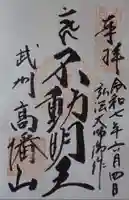 奉拝
令和七年六月四日
弘法大師御作
不動明王
武州高幡山